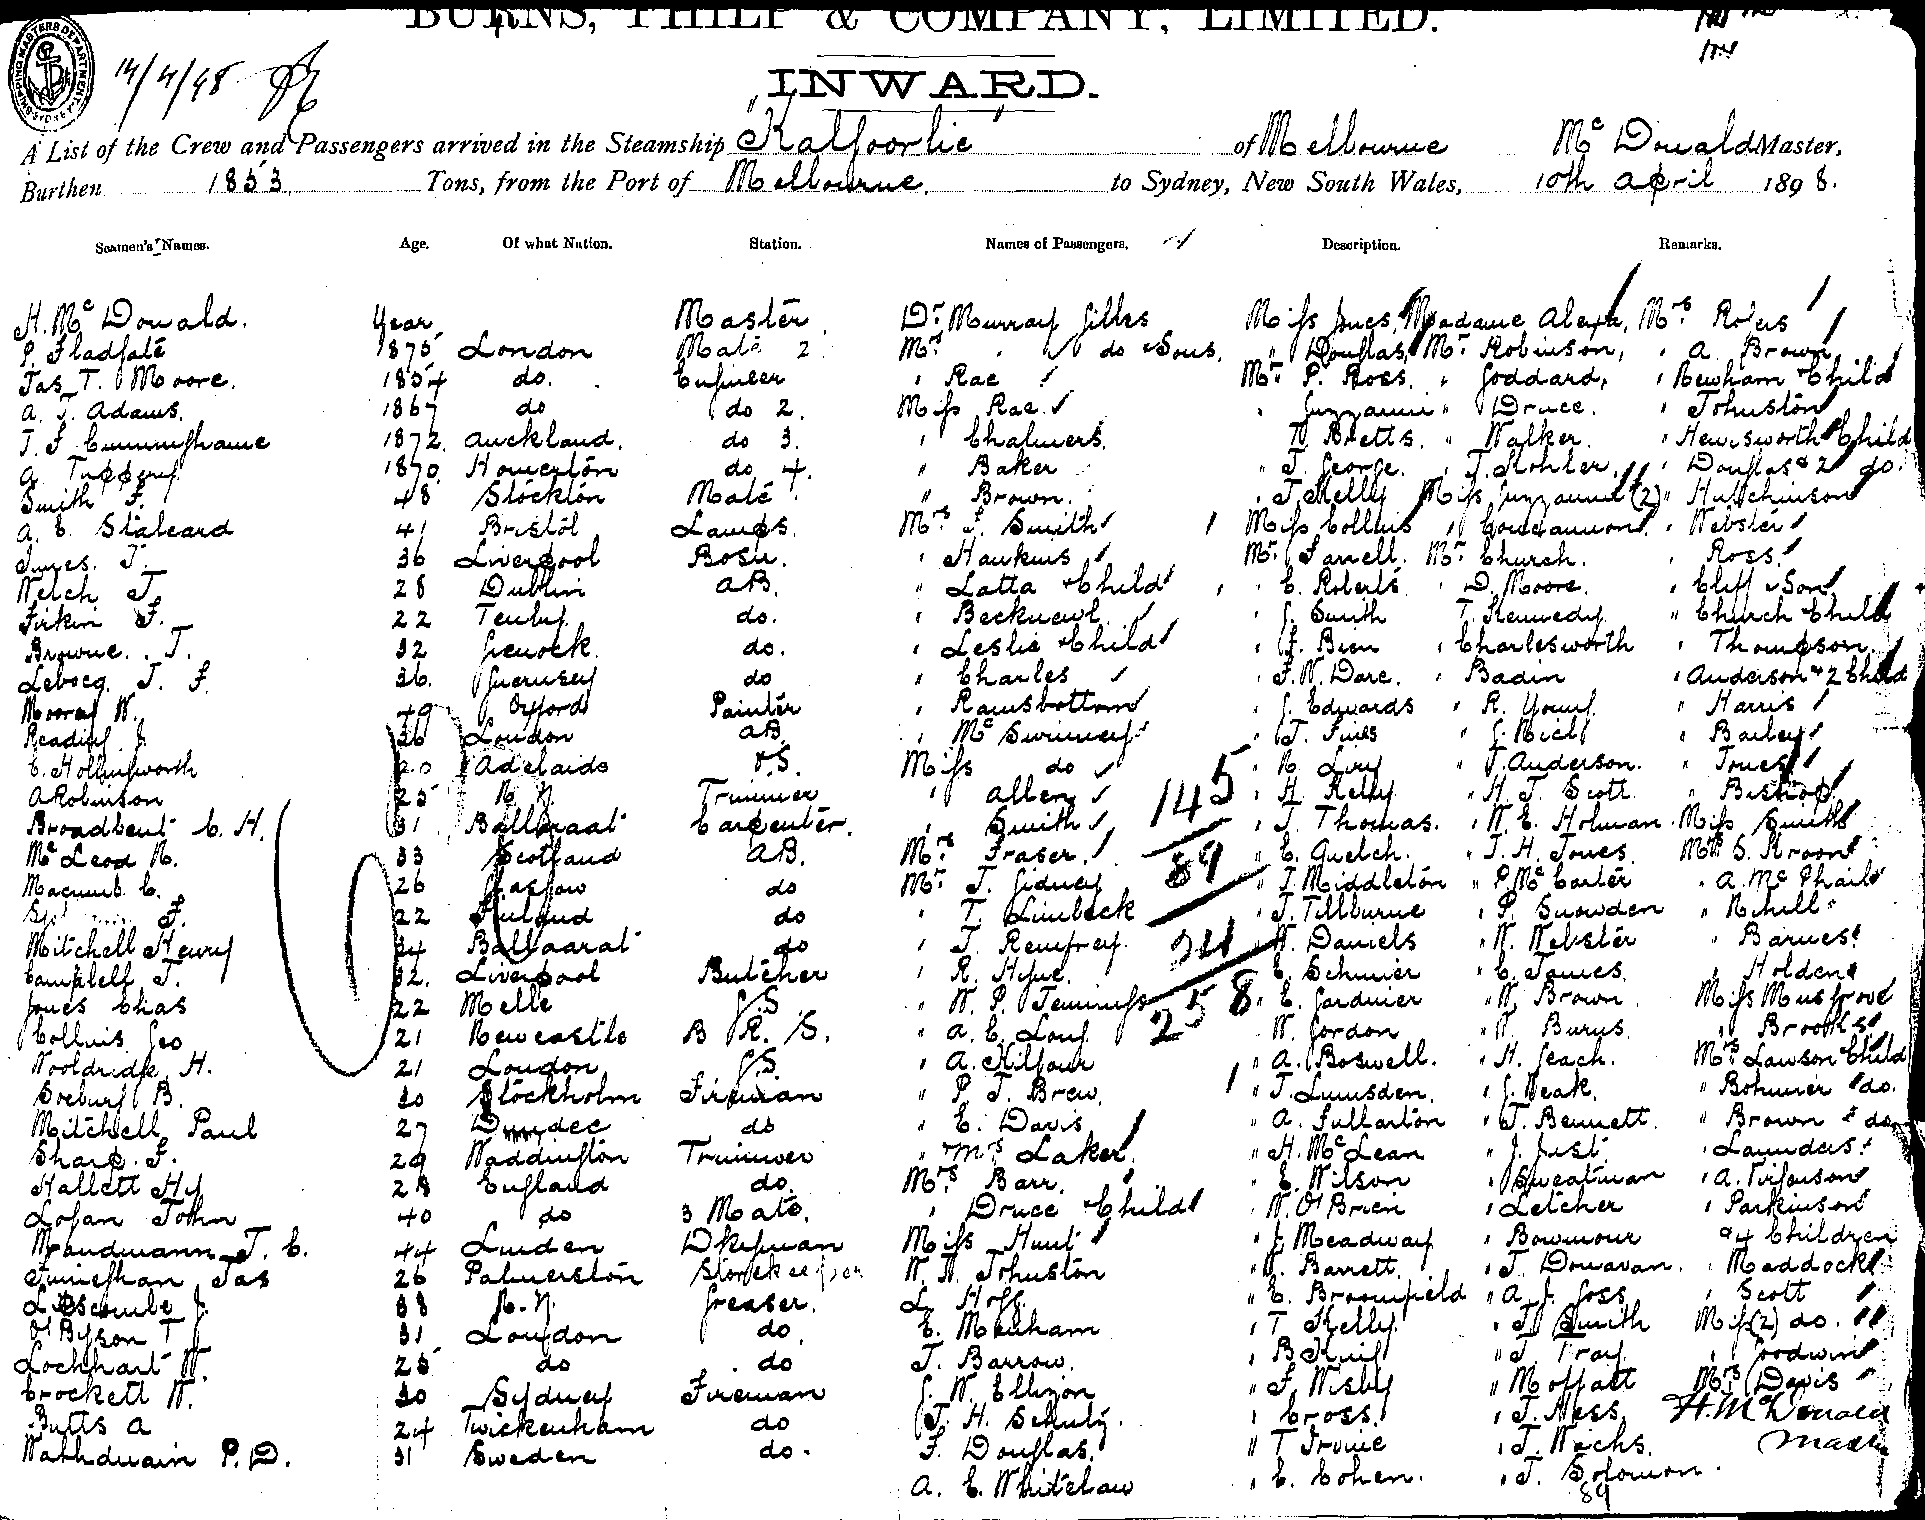 BURNS, PHILP & COMPANY, LIMITED.
14/4/98
INWARD.
A List of the Crew and Passengers arrived in the Steamship "Kalgoorlie" of Melbourne Mc Donald Master,
Burthen 1853 Tons, from the Port of Melbourne to Sydney, New South Wales, 10th April 1898.
Seamen's Names. Age. Of what Nation. Station. Names of Passengers. Description. Remarks.
H. Mc Donald. Year Master Dr Murray Gilles Miss Jones, Madame Alexa, Mrs Rogers
P. Fladgate 1875 London Mate 2 Mrs " do & Sons. " Douglas, Mr Robinson, " A. Brown
Jas T. Moore. 1854 do. Engineer " Rae Mr P. Ross. " Goddard, " Newham & Child
A. J. Adams. 1867 do do 2. Miss Rae " Druce. " Johnston
J. G. Cunninghame 1872. Auckland. do 3. " Chalmers. " Betts. " Walker. " Hewisworth & Child
A. 1870. Homerton do 4. " Baker " J. George. " J. Stohler. " Douglas & 2 do.
Smith F. 48 Stockton Mate " Brown. " J. Kelly Miss (2) " Hutchinson
A. E. 41 Bristol Lamps. Mrs J. Smith Miss Collins " " Webster
Jones. J. 36 Liverpool Bosn. " Hawkins Mr Farrell. Mr Church. " Ross.
Welch J. 28 Dublin AB. " Latta & Child " C. Roberts " D. Moore. " Cliff & Son
Firkin F. 22 Tenby. do. " " G. Smith " T. Kennedy " Church & Child
Browne. J. 32 Greenock. do. " Leslie & Child " J. Bien " Charlesworth " Thompson.
Lebocq. J. F. 36. Guernsey do " Charles " F. W. Dare. " Badin " Anderson & 2 Child
Mooray W. 49 Oxford Painter " Ramsbottom " G. Edwards " R. Young " Harris
Reading. J. 36 London AB. " Mc Swinney " J. Fines " G. Rich " Bailey
C. Hollingsworth 20 Adelaide O.S. Miss do " R. Levy " J. Anderson. " Jones
A Robinson 25 N. Z. Trimmer " Allen 145 " H. Kelly " H. J. Scott " Bishop
Broadbent C. H. 31 Ballaarat Carpenter. " Smith " J. Thomas. " W. E. Holman. Miss Smith
Mc Leod N. 33 Scotland A.B. Mrs Fraser. 89 " C. Quelch. " J. H. Jones. Mrs S. Kroon
Macumb C. 26 Glasgow do Mr J. Gidney " J. Middleton " P. Mc Carter " A. Mc Phail
F. 22 Finland do " T. Limbeck " J. Tillburne " P. Snowden " Nihill
Mitchell Henry 34 Ballaarat do " J. Renfrey 24 " W. Daniels " W. Webster " Barnes.
Campbell J. 32. Liverpool Butcher " R. Hyne. " C. Schmier " C. James. " Holden
Jones Chas 22 Melle G.S. " W. P. Jennings 258 " E. Gardnier " W. Brown Miss Musgrove
Collins Geo 21 Newcastle B R. S. " A. E. Long " W. Gordon " W. Burns. " Brooks
Wooldridge H. 21 London G.S. " A. Kilgour " A. Boswell. " H. Geach. Mrs Lawson & Child
Soeburg B. 30 Stockholm Fireman " P. J. Brew. " J. Lumsden. " G. Weak. " Bohmier & do.
Mitchell Paul 27 Dundee do " E. Davis " A. Fullarton " J. Bennett. " Brown & do.
Sharp. F. 29 Waddington Trimmer " Mrs Laker. " H. Mc Lean " J. Just " Launders
Hallett Hy 28 England do. Mrs Barr. " E. Wilson " Sweatman " A. Firguson
Logan John 40 do 3 Mate. " Druce & Child " W. O'Brien " Letcher " Parkinson
Mandmann J. C. 44 Linden Dkyman Miss Hunt " J. Meadway " Bowmour & 4 Children
Jas 26 Palmerston Storekeeper W. W. Johnston " W. Barrett. " J. Donavan. " Maddock
Lipscombe J. 38 N. Z. Greaser. L. Hogg. " C. Broomfield " A. J. Goss " Scott
O'Byson T J 31 London do. E. Menham " T Kelly " J. Smith Miss (2) do.
Lockhart W. 25 do do J. Barrow. " B King " J. Tray " Goodwin
Crockett W. 30 Sydney Fireman G. W. Ellizon " J. Wisby " Moffatt Mrs Davis
Butts A 24 Twickenham do J. H. Schultz. " Cross. " J. Ness H. Mc Donald
P. D. 31 Sweden do. F. Douglas. " T Irvine " J. Wachs. Master
A. E. Whitelaw " C. Cohen. " J. Solomon.
89